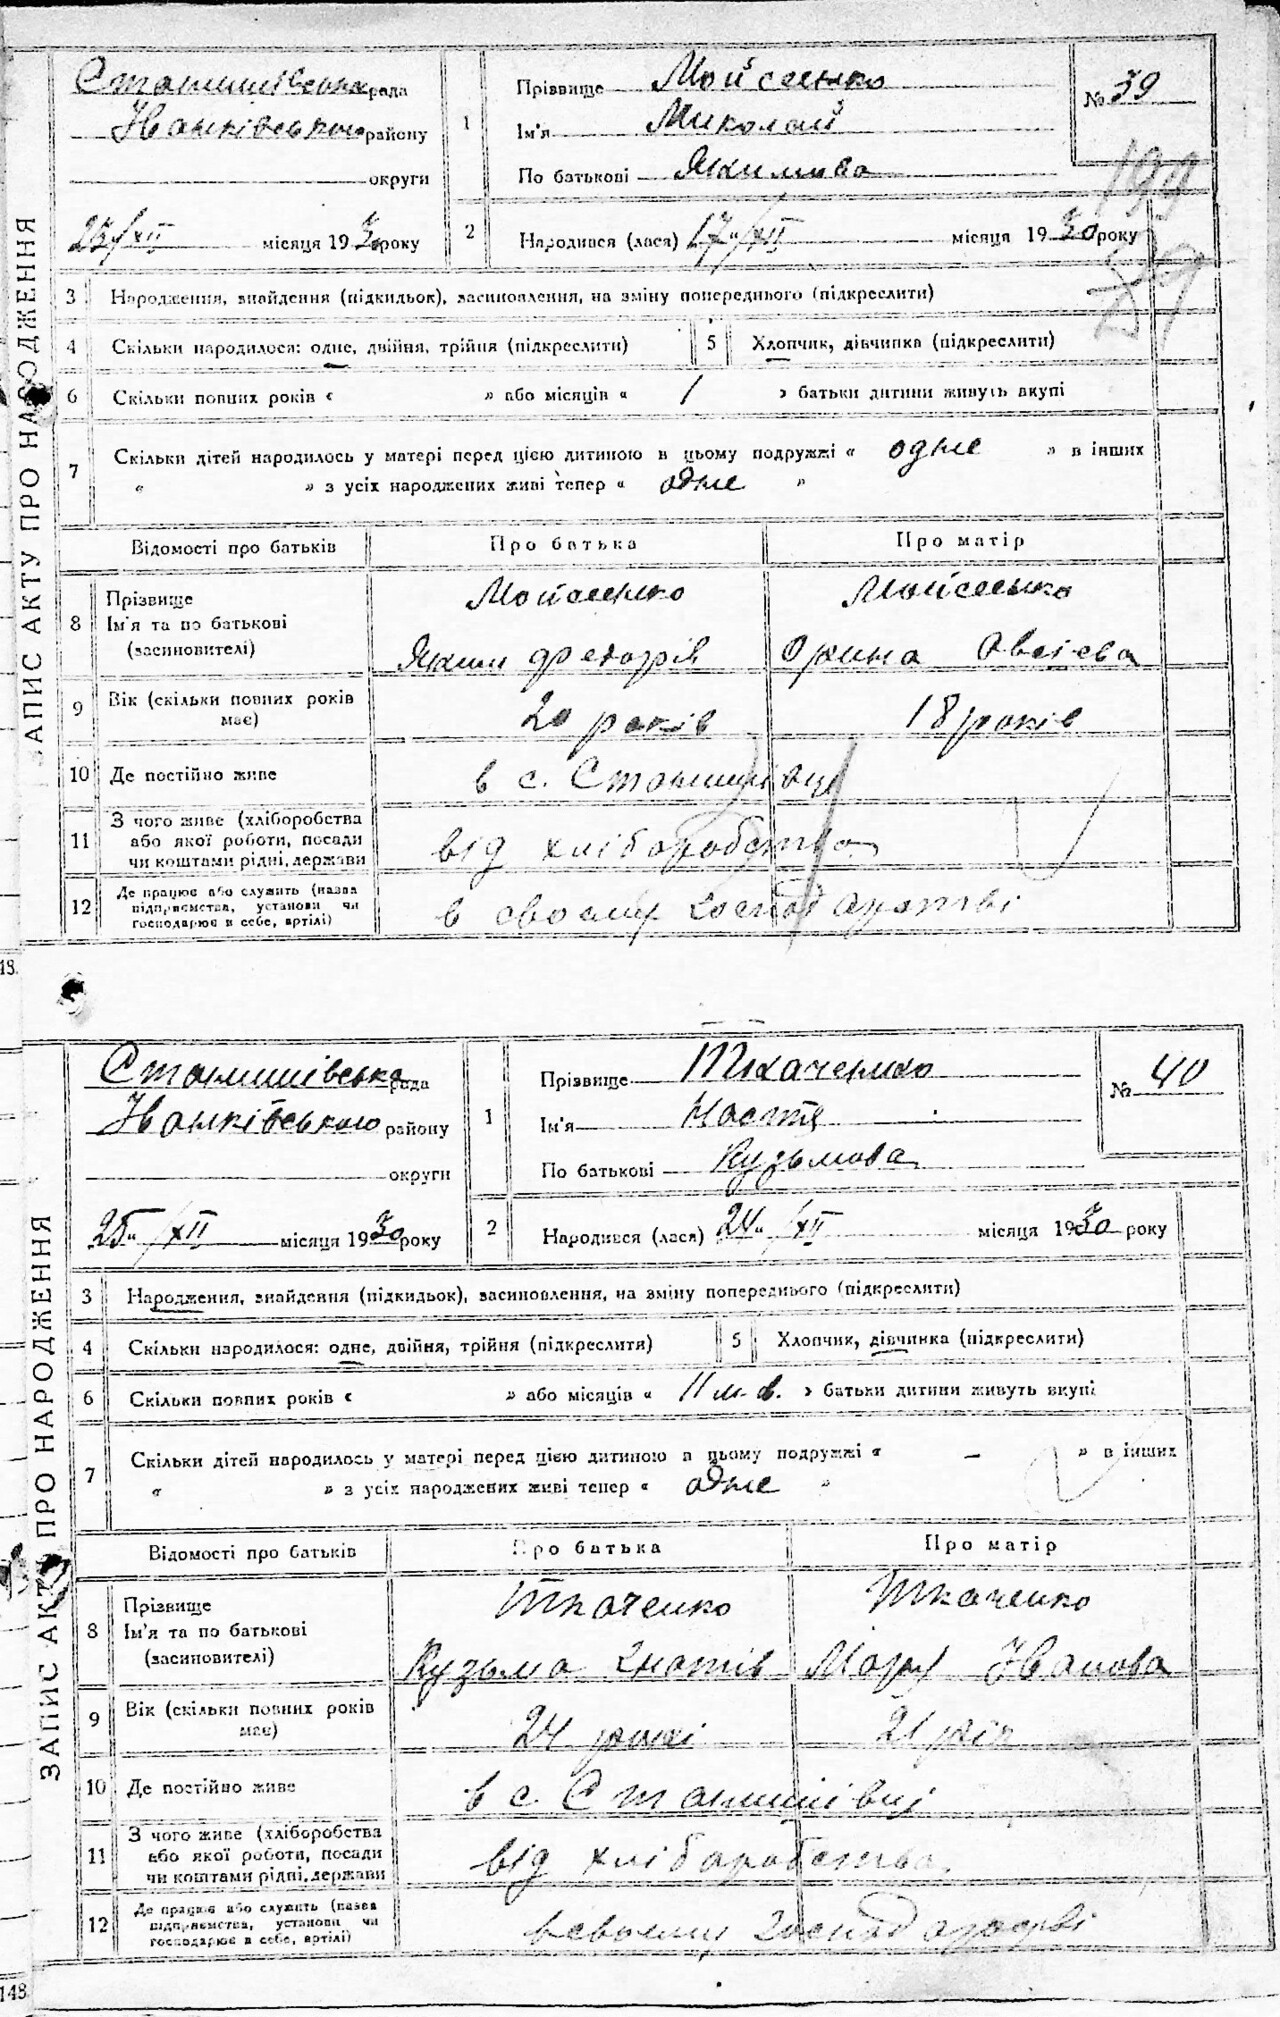 ЗАПИС АКТУ ПРО НАРОДЖЕННЯ
Станишівська рада
Іванківського району
округи
23/XII місяця 1930 року
1 Прізвище Мойсеєнко
Ім'я Миколай
По батькові Якимова
№ 39
2 Народився (лася) 17/XII місяця 1930 року
3 Народження, знайдення (підкидьок), засиновлення, на зміну попереднього (підкреслити)
4 Скільки народилося: одне, двійня, трійня (підкреслити) 5 Хлопчик, дівчинка (підкреслити)
6 Скільки повних років « » або місяців « 1 » батьки дитини живуть вкупі
7 Скільки дітей народилось у матері перед цією дитиною в цьому подружжі « одне » в інших
« » з усіх народжених живі тепер « одне »
Відомості про батьків Про батька Про матір
8 Прізвище Мойсеєнко Мойсеєнко
Ім'я та по батькові
(засиновителі) Яким Федорів Орина Овсієва
9 Вік (скільки повних років має) 20 років 18 років
10 Де постійно живе в с. Станишівці
11 З чого живе (хліборобства
або якої роботи, посади
чи коштами рідні, держави від хліборобства
12 Де працює або служить (назва
підприємства, установи чи
господарює в себе, артілі) в своєму господарстві
148
ЗАПИС АКТУ ПРО НАРОДЖЕННЯ
Станишівська рада
Іванківського району
округи
25/XII місяця 1930 року
1 Прізвище Ткаченко
Ім'я Настя
По батькові Кузьмова
№ 40
2 Народився (лася) 24/XII місяця 1930 року
3 Народження, знайдення (підкидьок), засиновлення, на зміну попереднього (підкреслити)
4 Скільки народилося: одне, двійня, трійня (підкреслити) 5 Хлопчик, дівчинка (підкреслити)
6 Скільки повних років « » або місяців « 11 м-в. » батьки дитини живуть вкупі
7 Скільки дітей народилось у матері перед цією дитиною в цьому подружжі « – » в інших
« » з усіх народжених живі тепер « одне »
Відомості про батьків Про батька Про матір
8 Прізвище Ткаченко Ткаченко
Ім'я та по батькові
(засиновителі) Кузьма Гнатів Іванова
9 Вік (скільки повних років має) 24 роки 21 рік
10 Де постійно живе в с. Станишівці
11 З чого живе (хліборобства
або якої роботи, посади
чи коштами рідні, держави від хліборобства
12 Де працює або служить (назва
підприємства, установи чи
господарює в себе, артілі) в своєму господарстві
148